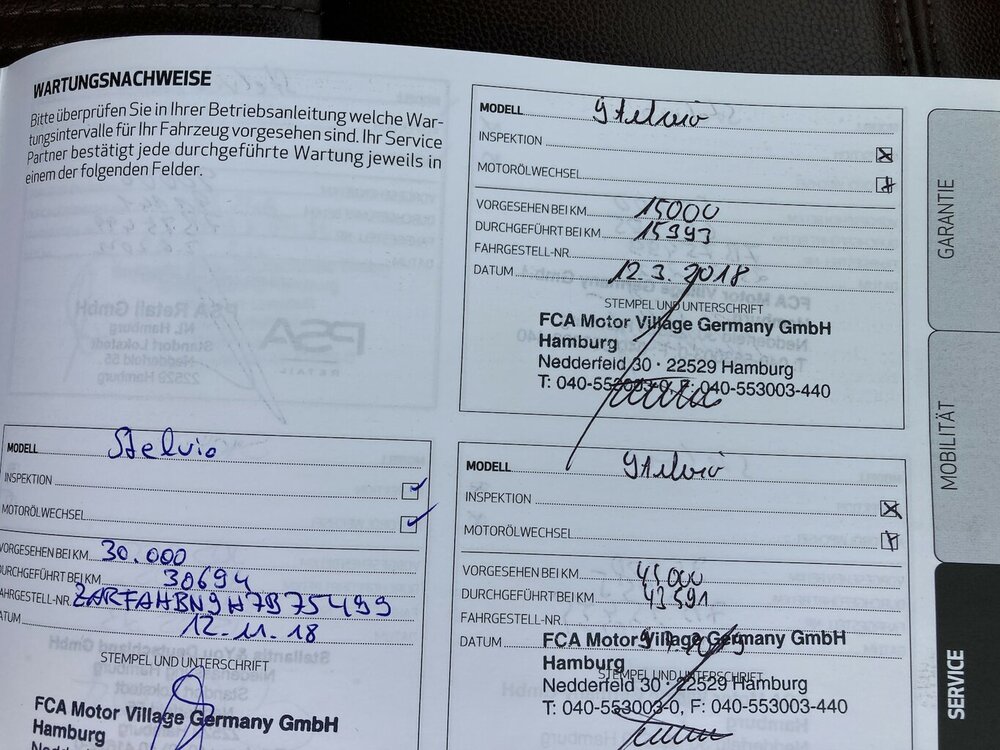 WARTUNGSNACHWEISE
Bitte überprüfen Sie in Ihrer Betriebsanleitung welche War-
tungsintervalle für Ihr Fahrzeug vorgesehen sind. Ihr Service
Partner bestätigt jede durchgeführte Wartung jeweils in
einem der folgenden Felder.
MODELL Stelvio
INSPEKTION
MOTORÖLWECHSEL
VORGESEHEN BEI KM 15000
DURCHGEFÜHRT BEI KM 15993
FAHRGESTELL-NR.
DATUM 12.3.2018
STEMPEL UND UNTERSCHRIFT
FCA Motor Village Germany GmbH
Hamburg
Nedderfeld 30 · 22529 Hamburg
T: 040-553003-0, F: 040-553003-440
MODELL Stelvio
INSPEKTION
MOTORÖLWECHSEL
VORGESEHEN BEI KM 30.000
DURCHGEFÜHRT BEI KM 30694
FAHRGESTELL-NR. ZARFAHBN9H7B75499
DATUM 12-11-18
STEMPEL UND UNTERSCHRIFT
FCA Motor Village Germany GmbH
Hamburg
MODELL Stelvio
INSPEKTION
MOTORÖLWECHSEL
VORGESEHEN BEI KM 45000
DURCHGEFÜHRT BEI KM 43591
FAHRGESTELL-NR.
DATUM
FCA Motor Village Germany GmbH
Hamburg
STEMPEL UND UNTERSCHRIFT
Nedderfeld 30 · 22529 Hamburg
T: 040-553003-0, F: 040-553003-440
GARANTIE
MOBILITÄT
SERVICE